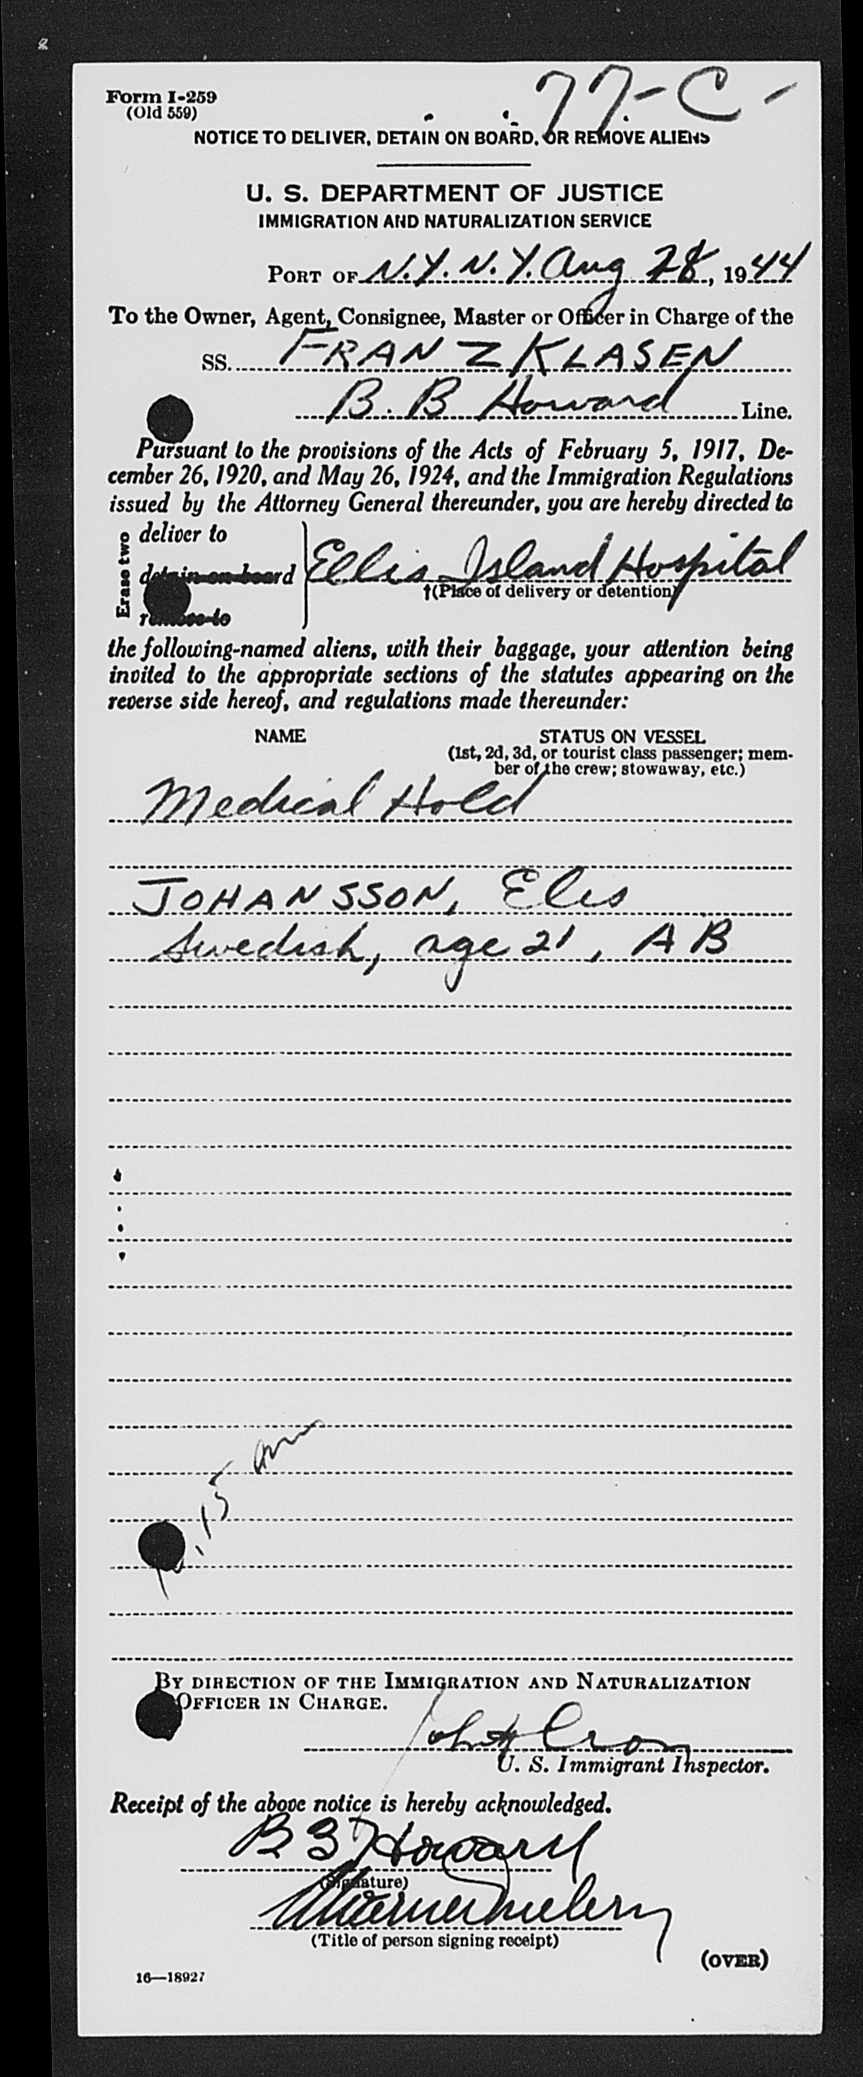 77-C-
Form I-259
(Old 559)
NOTICE TO DELIVER, DETAIN ON BOARD, OR REMOVE ALIENS
U. S. DEPARTMENT OF JUSTICE
IMMIGRATION AND NATURALIZATION SERVICE
PORT OF N.Y. N.Y. Aug 28, 1944
To the Owner, Agent, Consignee, Master or Officer in Charge of the
SS. FRANZ KLASEN
B. B Howard Line.
Pursuant to the provisions of the Acts of February 5, 1917, De-
cember 26, 1920, and May 26, 1924, and the Immigration Regulations
issued by the Attorney General thereunder, you are hereby directed to
Erase two
deliver to
detain on board
remove to
Ellis Island Hospital
†(Place of delivery or detention)
the following-named aliens, with their baggage, your attention being
invited to the appropriate sections of the statutes appearing on the
reverse side hereof, and regulations made thereunder:
NAME STATUS ON VESSEL
(1st, 2d, 3d, or tourist class passenger; mem-
ber of the crew; stowaway, etc.)
Medical Hold
JOHANSSON, Elis
Swedish, age 21, AB
15 am
BY DIRECTION OF THE IMMIGRATION AND NATURALIZATION
OFFICER IN CHARGE.
John
U. S. Immigrant Inspector.
Receipt of the above notice is hereby acknowledged.
B B Howard
(Signature)
(Title of person signing receipt)
(OVER)
16—18927